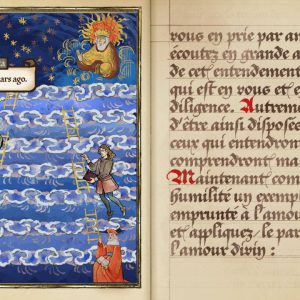 ars ago.
vous en prie par am
écoutez en grande a
de cet entendement
qui est en vous et e
diligence. Autreme
d'être ainsi disposée
ceux qui entendront
comprendront ma
Maintenant, com
humilité un exemp
emprunté à l'amou
et appliquez le par
l'amour divin :